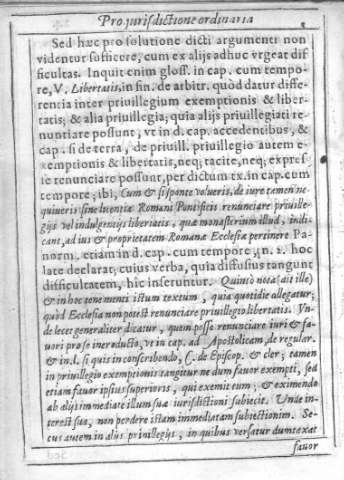 Pro jurisdictione ordinaria
Sed hæc pro solutione dicti argumenti non
videntur sufficere, cum ex alijs adhuc vrgeat dif
ficultas. Inquit enim gloss. in cap. cum tempo-
re, V. Libertatis. in fin. de arbitr. quòd datur diffe-
rentia inter priuillegium exemptionis & liber-
tatis; & alia priuillegia; quia alijs priuillegiati re-
nuntiare possunt, vt in d. cap. accedentibus, &
cap. si de terra, de priuill. priuillegio autem e-
xemptionis & libertatis, neq; tacite, neq; expres-
se renunciare possunt, per dictum tx. in cap. cum
tempore; ibi, Cum & si sponte volueris, de iure tamen ne-
quiueris sine licentia Romani Pontificis renunciare priuille-
gijs vel indulgentijs libertatis, quæ monasterium illud, indi-
cant, ad ius & proprietatem Romanæ Ecclesiæ pertinere Pa-
norm. etiam in d. cap. cum tempore, n. 2. hoc
late declarat; cuius verba, quia diffusius tangunt
difficultatem, hic inseruntur. Quintò nota (ait ille)
& in hoc tene menti istum textum, quia quotidie allegatur;
quòd Ecclesia non potest renunciare priuillegio libertatis. Vn-
de licet generaliter dicatur, quem posse renunciare iuri & fa-
uori pro se introducto, vt in cap. ad Apostolicam, de regular.
& in l. si quis in conscribendo, C. de Episcop. & cler; tamen
in priuillegio exemptionis tangitur ne dum fauor exempti, sed
etiam fauor ipsius superioris, qui exemit eum; & eximendo
ab alijs immediate illum suæ iurisdictioni subiecit. Vnde in-
terest sua, non perdere istam immediatam subiectionem. Se-
cus autem in alijs priuillegijs, in quibus versatur dumtaxat
fauor